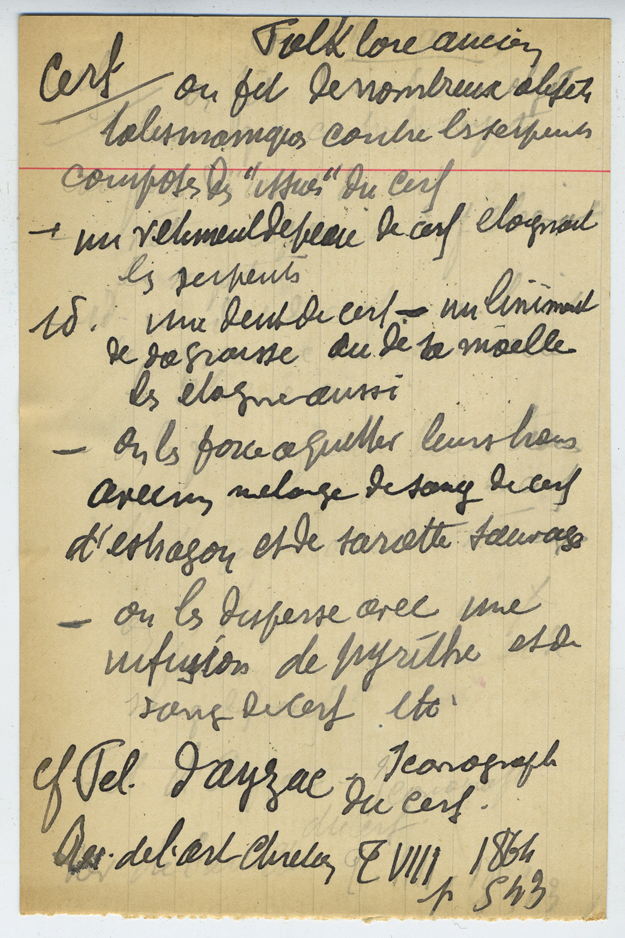 Folklore ancien
Cerf on fit de nombreux objets
talismaniques contre les serpents
composés des "issues" du cerf
un vêtement de peau de cerf éloignait
les serpents
id. une dent de cerf – un liniment
de sa graisse ou de sa moëlle
les éloigne aussi
– on les force a quitter leurs trous
avec un mélange de sang de cerf
d'estragon et de sarrette sauvage
– on les disperse avec une
infusion de pyrèthre et de
sang de cerf etc
cf Fel. d'ayzac – Iconograph
du cerf.
Rev. de l'art Chretien T VIII 1864
p 543